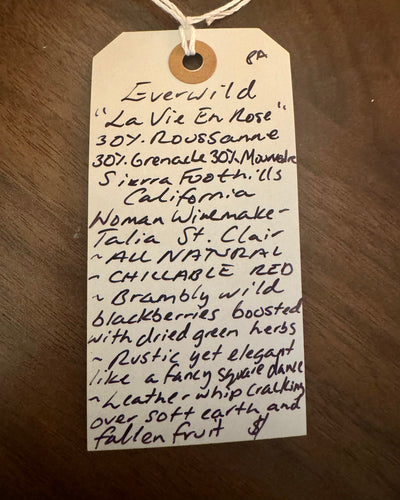 PA
Everwild
"La Vie En Rose"
30% Roussanne
30% Grenache 30% Mourvedre
Sierra Foothills
California
Woman Winemaker-
Talia St. Clair
~ ALL NATURAL
~ CHILLABLE RED
~ Brambly wild
blackberries boosted
with dried green herbs
~ Rustic yet elegant
like a fancy square dance
~ Leather whip cracking
over soft earth and
fallen fruit $